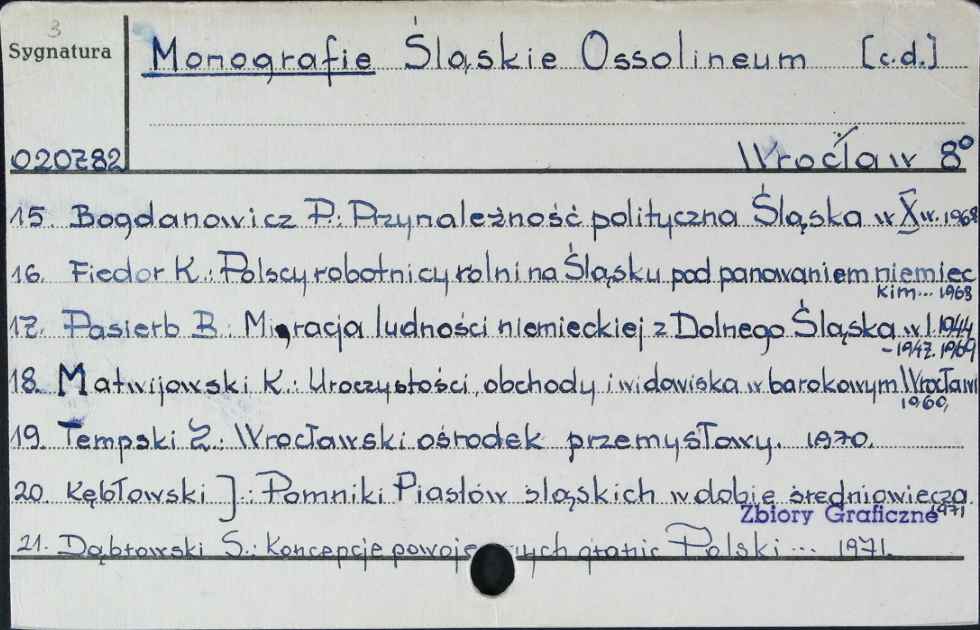 3
Sygnatura
Monografie Śląskie Ossolineum [c.d.]
020782
Wrocław 8°
15. Bogdanowicz P.: Przynależność polityczna Śląska w X w. 1968
16. Fiedor K.: Polscy robotnicy rolni na Śląsku pod panowaniem niemiec
kim... 1968
17. Pasierb B.: Migracja ludności niemieckiej z Dolnego Śląska w l. 1944
-1947. 1969
18. Matwijowski K.: Uroczystości, obchody i widowiska w barokowym Wrocławi
1969,
19. Tempski Z.: Wrocławski ośrodek przemysławy. 1970.
20. Kębłowski J.: Pomniki Piastów śląskich w dobie średniowiecza
1971
Zbiory Graficzne
21. Dąbrowski S.: Koncepcje powoje ych granic Polski... 1971.